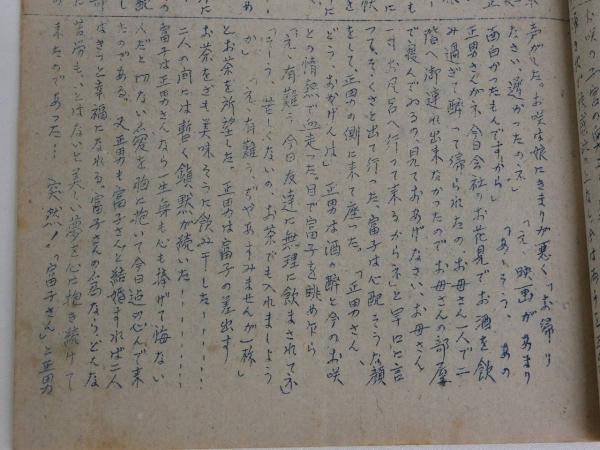 声がした。お咲は娘にきまりが悪く「お帰り
ださい、遅かったのネ」「えゝ映画があまり
面白かったもんですから」「あゝそう、あの
正男さんがネ、今日会社のお花見でお酒を飲
み過ぎて酔って帰られたの お母さん一人で二
階へ御連れ出来なかったのでお母さんの部屋
で寝んでゐるの見ておあげなさい、お母さん
一寸お風呂へ行って来るからネ」と早口に言
つてそくさと出て行った 富子は心配そうな顔
をして正男の側に来て座った。「正男さん、
どう、おかげんは」正男は酒の酔と今のお咲
との情熱で血走った目で富子を眺め乍ら
「えゝ有難う、今日友達に無理に飲まされて」
「そーう、苦しくないの、お茶でも入れましよう
か」「えゝ有難う、ぢやあすみませんが一杯」
とお茶を所望した。正男は富子の差出す
お茶をさも美味そうに飲み干した……
二人の間には暫く鎮黙が続いた……
富子は正男さんなら一生身も心も捧げて悔ない
人だと切ない愛を胸に抱いて今日迄忍んで来
たのである。又正男も富子さんと結婚すれば二人
はきつと幸福になれる。富子さんの為ならどんな
苦労もいとはないと美しい夢を心に抱き続けて
来たのであった… 突然!「富子さん」と正男